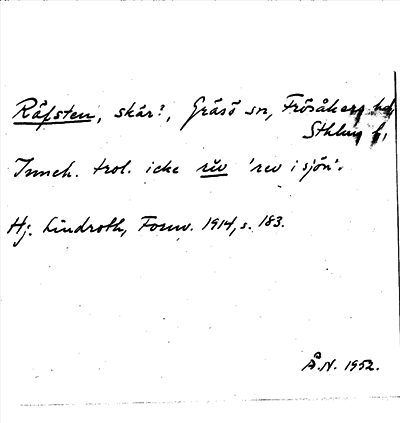 Räfsten, skär?, Gräsö sn, Frösåkers hd,
Sthlms l.
Inneh. trol. icke rev 'rev i sjön'.
Hj. Lindroth, Fornv. 1914, s. 183.
Å.N. 1952.